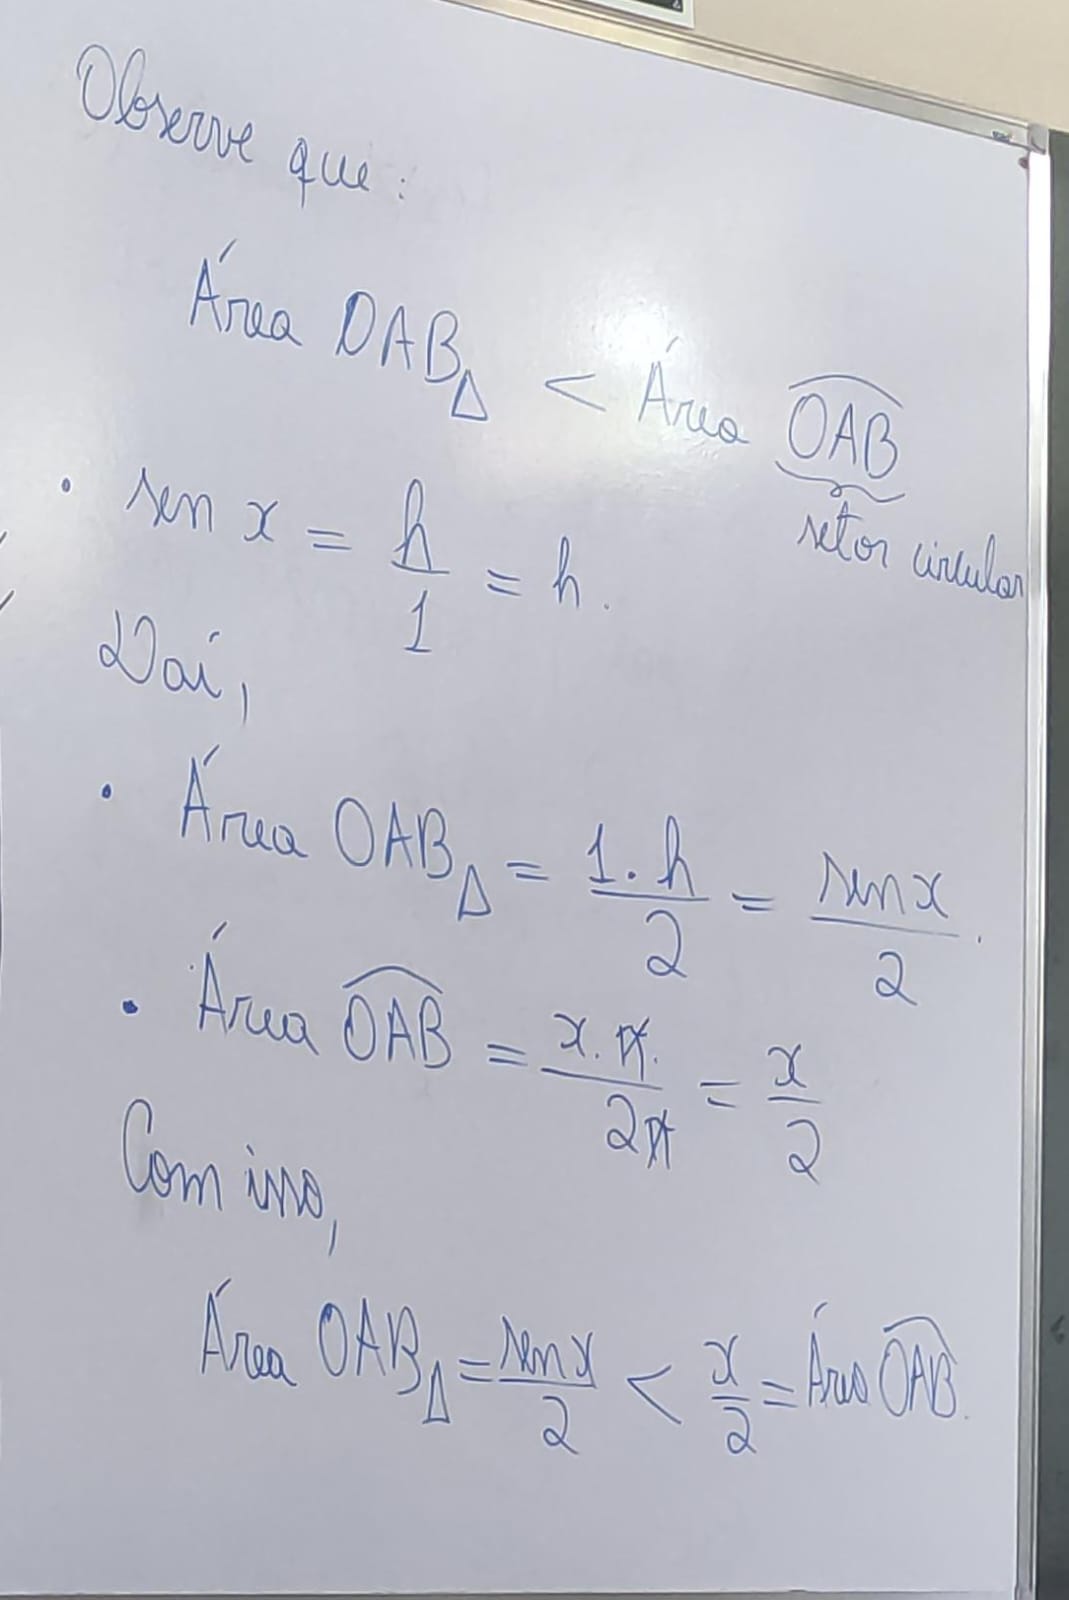 Observe que:
Área OAB△ < Área OAB
setor circular
• sen x = h/1 = h.
Daí,
• Área OAB△ = 1.h/2 = sen x/2.
• Área OAB = x.π./2π = x/2
Com isso,
Área OAB△ = sen x/2 < x/2 = Área OAB.